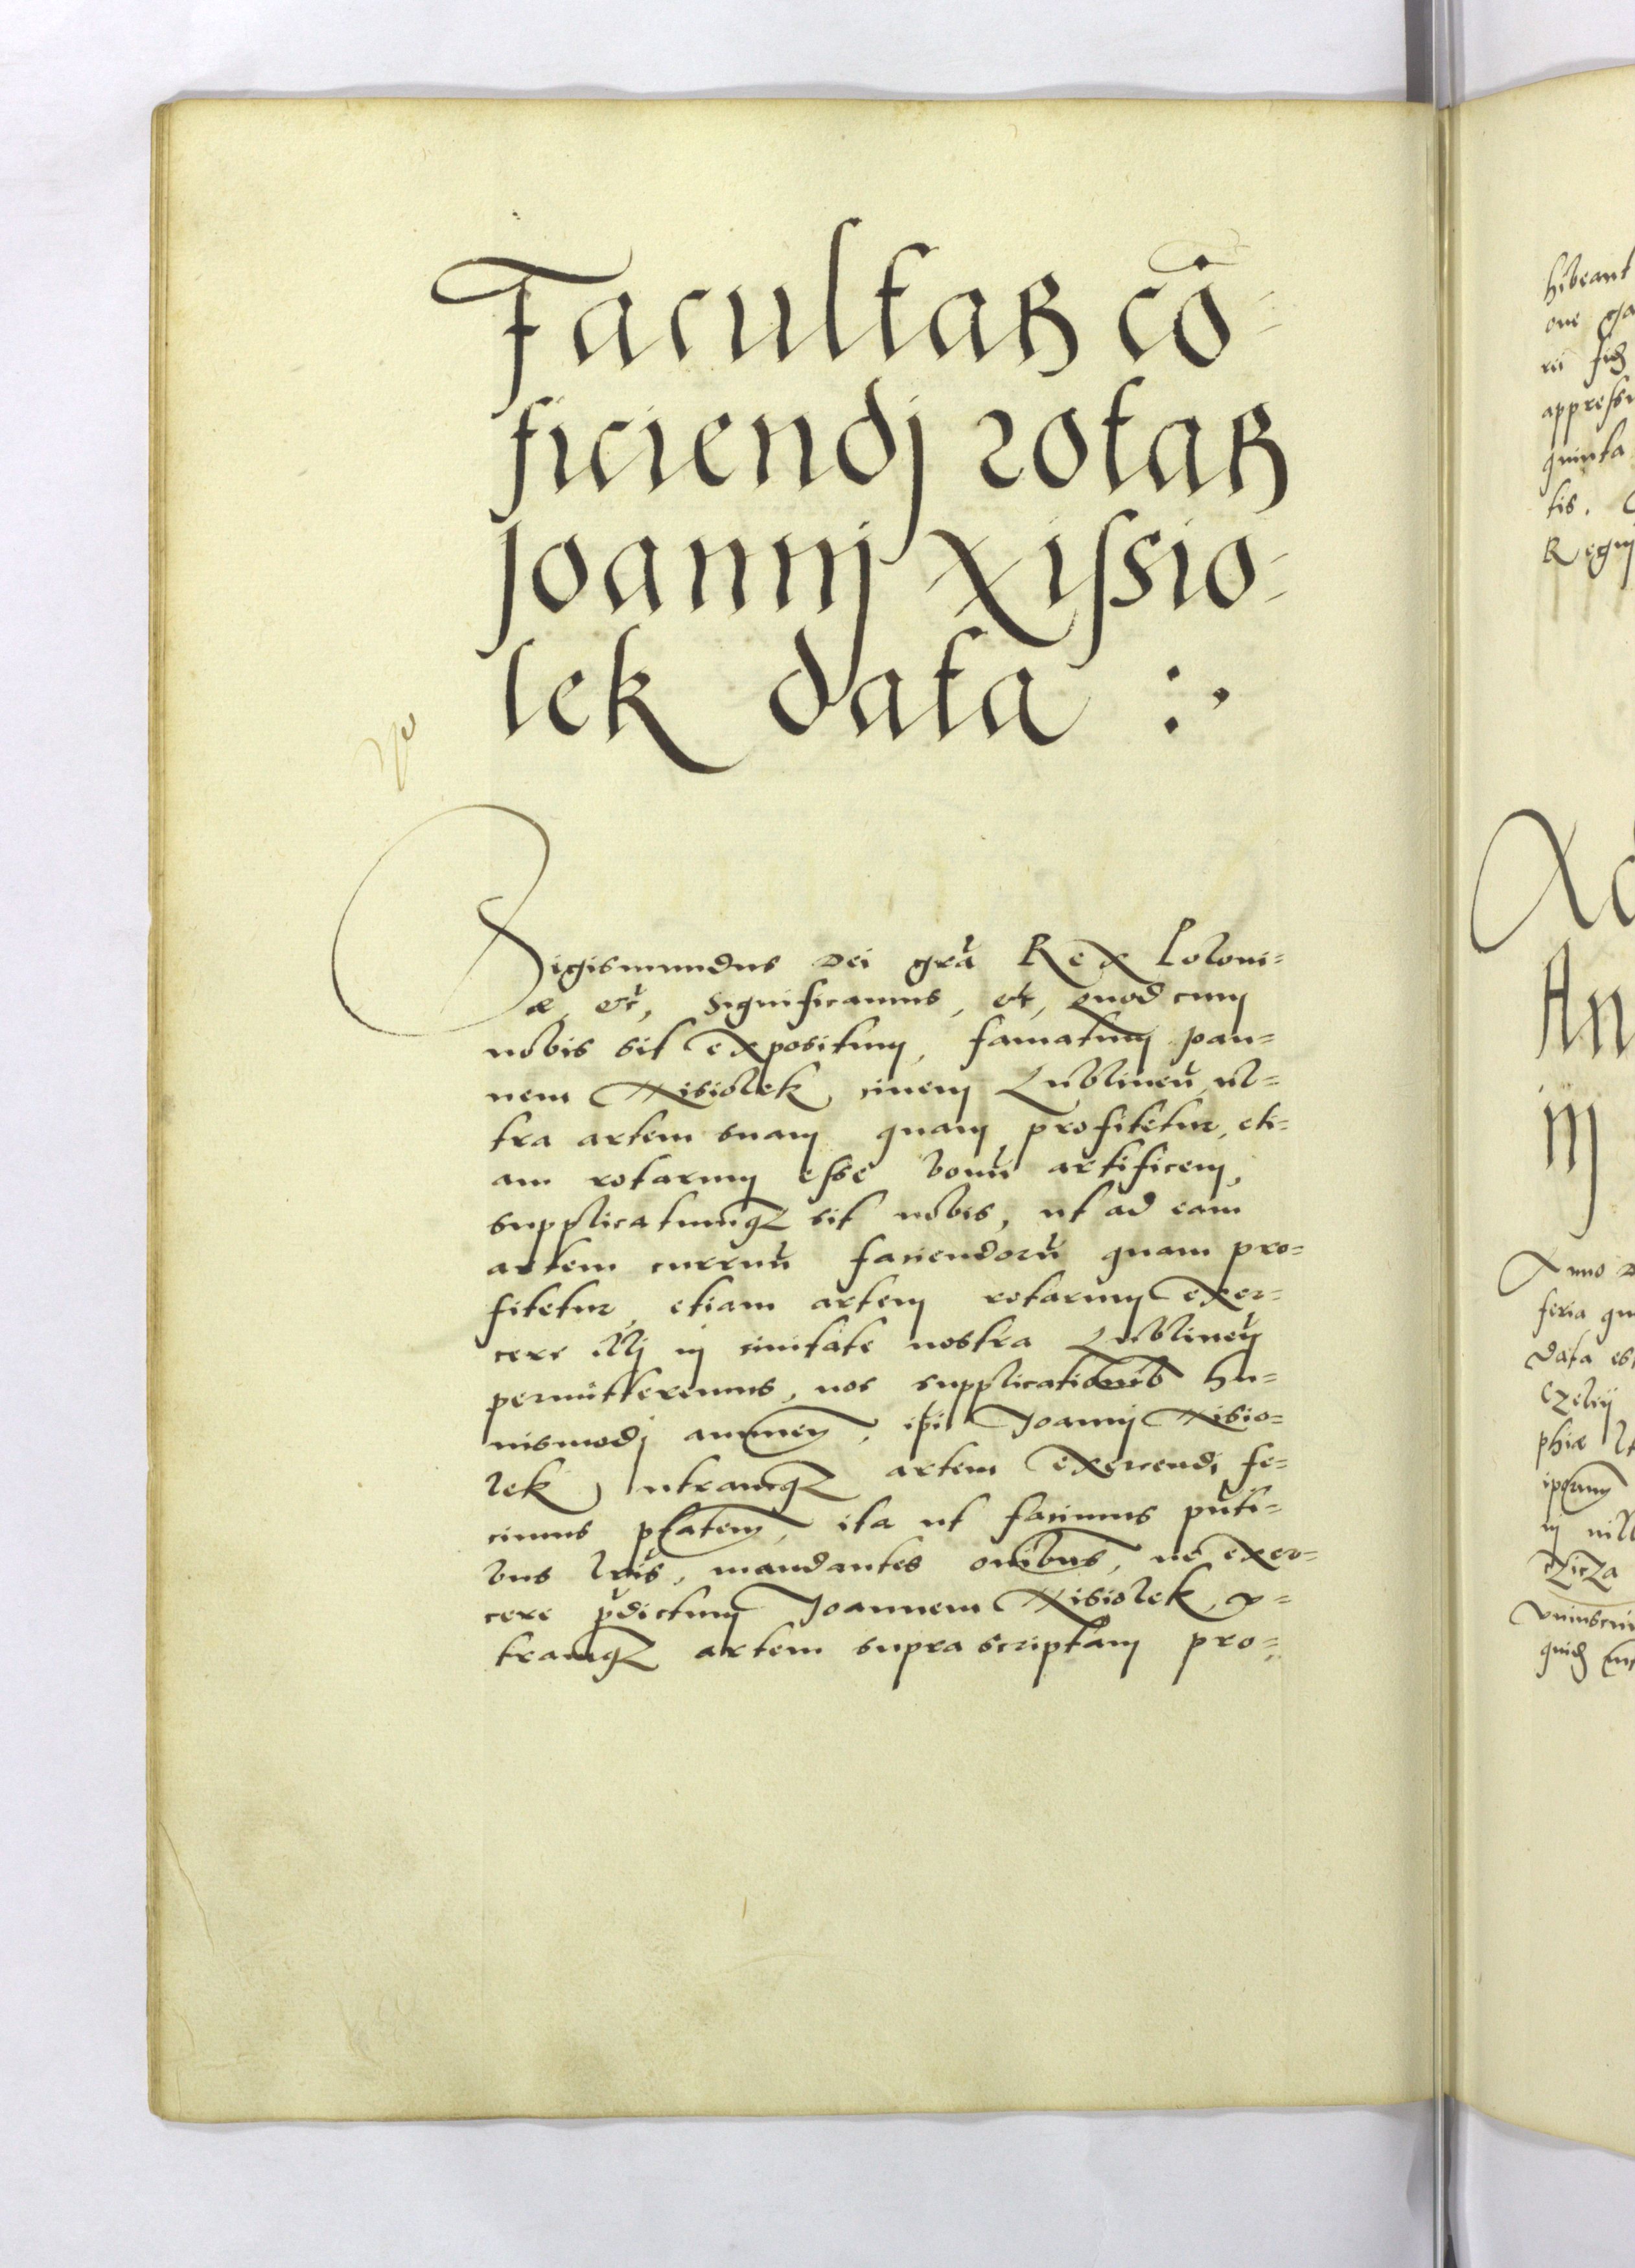 Facultas cō-
ficiendj rotas
Joannj Xissio-
lek data :.
Sigismundus Dei gr̃a Rex Poloni=
æ, etc̃, significamus, etc, quod cum
nobis sit expositum, famatum Joan=
nem Xisiolek, ciuem Lublineñ, vl=
tra artem suam quam profitetur, eti=
am rotarum esse bonũ artificem,
supplicatumq3 sit nobis, ut ad eam
artem curruũ faciendorũ quam pro=
fitetur, etiam artem rotarum exer=
cere illj in ciuitate nostra Lublineñ
permitteremus, nos supplicationib hu=
iusmodj annuen, ip̃i Joannj Xisio=
lek, utramq3 artem exercendi fe=
cimus p̃tatem, ita ut facimus pñti=
bus lr̃is, mandantes om̃ibus, ne exer=
cere p̃dictum Joannem Xisiolek, v=
tramq3 artem suprascriptam pro=
hibeant
appressu
quinta
tis.
Regnj
Ad
An
iij
Anno D
feria qu
data es
Czelij
phiæ
ipsum
czicza
vniuscui